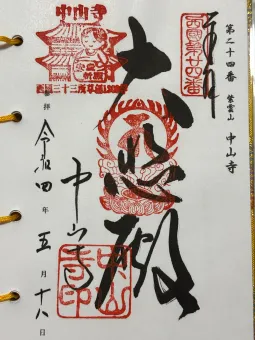 第二十四番 紫雲山 中山寺
奉拝
西國第廿四番
大悲殿
中山寺
中山寺
安産
祈願
西国三十三所草創1300年
中山寺印
拝
令和四年五月十八日